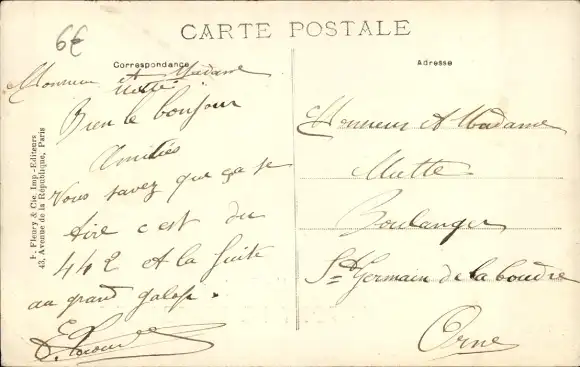 6€
CARTE POSTALE
Correspondance
Adresse
Monsieur et Madame
Mette
Bien le bonjour
Amitiés
Vous savez que ça se
tire c est du
442 et la fuite
au grand galop.
F. Fleury & Cie, Imp.-Editeurs
43, Avenue de la République, Paris
Monsieur et Madame
Mette
Boulanger
St Germain de la Coudre
Orne